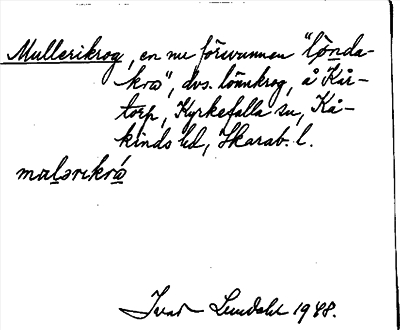 Mullerikrog, en nu försvunnen "lönda-
kroa", dvs. lönnkrog, å Kår-
torp, Kyrkefalla sn, Kå-
kinds hd, Skarab. l.
mulərikrɷ́
Ivar Lundahl 1948.